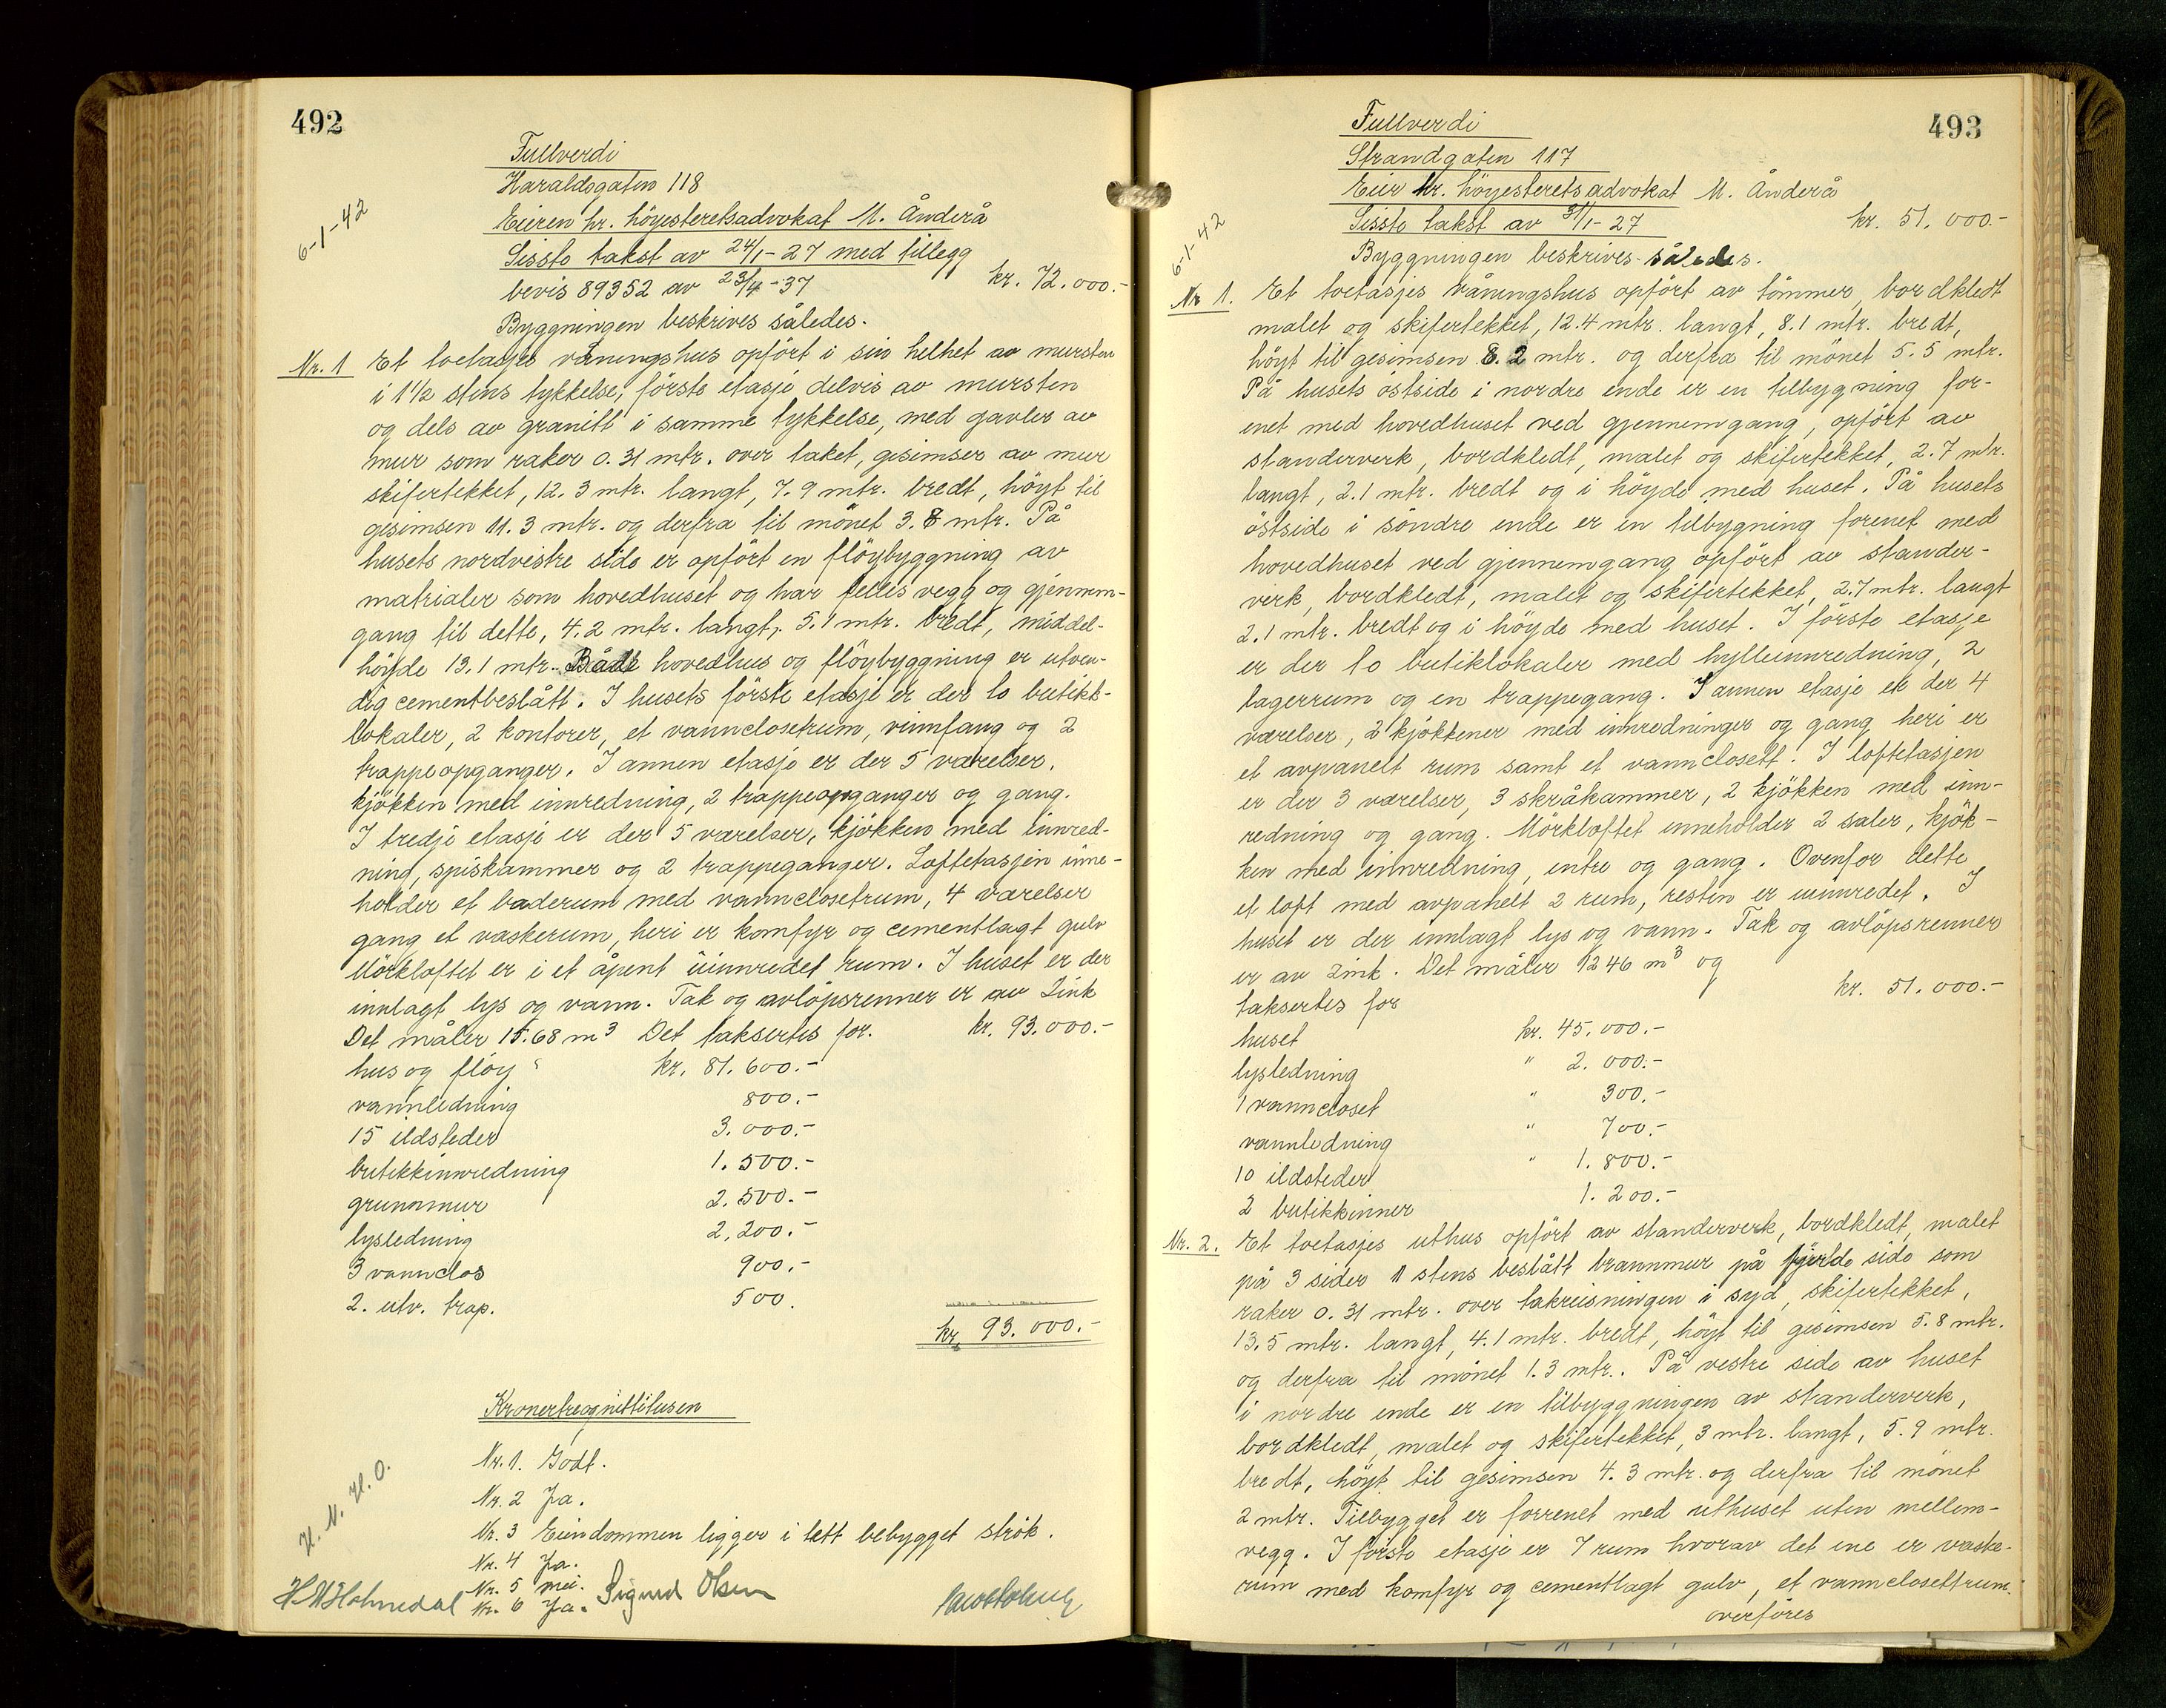 492
Fullverdi
Haraldsgaten 118
6-1-42
Eieren hr. höyesteretsadvokat M. Ånderå
Sissto takst av 24/1-27 med tillegg
bevis 89352 av 23/4-37 kr. 72.000.-
Byggningen beskrives således.
Nr. 1 Et toetasjes våningshus opfört i sin helhet av mursten
i 1½ stens tykkelse, förste etasje delvis av mursten
og dels av granitt i samme tykkelse, med gavler av
mur som raker 0.31 mtr. over taket, gesimser av mur
skifertekket, 12.3 mtr. langt, 7.9 mtr. bredt, höyt til
gesimsen 11.3 mtr. og derfra til mönet 3.8 mtr. På
husets nordvestre side er opfört en flöybyggning av
matrialer som hovedhuset og har felles vegg og gjennem-
gang til dette, 4.2 mtr. langt, 5.1 mtr. bredt, middel-
höyde 13.1 mtr. Både hovedhus og flöybyggning er utven-
dig cementbeslått. I husets förste etasje er der to butikk-
lokaler, 2 kontorer, et vannclosetrum, vinnfang og 2
trappeopganger. I annen etasje er der 5 værelser,
kjökken med innredning, 2 trappeopganger og gang.
I tredje etasje er der 5 værelser, kjökken med innred-
ning, spiskammer og 2 trappeganger. Loftetasjen inne-
holder et baderum med vannclosetrum, 4 værelser
gang et vaskerum, heri er komfyr og cementlagt gulv
Mörkloftet er i et åpent uinnredet rum. I huset er der
innlagt lys og vann. Tak og avlöpsrenner er av Zink
Det måler 15.68 m³ Det taksertes for. kr. 93.000.-
hus og flöy kr. 81.600.-
vannledning 800.-
15 ildsteder 3.000.-
butikkinnredning 1.500.-
grunnmur 2.500.-
lysledning 2,200.-
3 vannclos 900.-
2. utv. trap. 500.
kr. 93.000.-
Kronertreognittitusen
Nr. 1. Godt.
Nr. 2 Ja.
H. N. H. O.
Nr. 3 Eiendommen ligger i tett bebygget strök.
Nr. 4 Ja.
Nr. 5 nei.
Nr. 6 Ja.
H. N Holmedal Sigurd Olsen
493
Fullverdi
Strandgaten 117
6-1-42
Eier hr. höyesteretsadvokat M. Ånderå
Sissto takst av 31/1-27 kr. 51.000.-
Byggningen beskrives således.
Nr 1. Et toetasjes våningshus opfört av tömmer, bordkledt
malet og skifertekket, 12.4 mtr. langt, 8.1 mtr. bredt,
höyt til gesimsen 8.2 mtr. og derfra til mönet 5.5 mtr.
På husets östside i nordre ende er en tilbygning for-
enet med hovedhuset ved gjennemgang, opfört av
standerverk, bordkledt, malet og skifertekket, 2.7 mtr.
langt, 2.1 mtr. bredt og i höyde med huset. På husets
östside i söndre ende er en tilbygning forenet med
hovedhuset ved gjennemgang opfört av stander-
verk, bordkledt, malet og skifertekket, 2.7 mtr. langt
2.1 mtr. bredt og i höyde med huset. I förste etasje
er der to butiklokaler med hylleinnredning, 2
lagerrum og en trappegang. I annen etasje er der 4
værelser, 2 kjökkener med innredninger og gang heri er
et avpanelt rum samt et vannclosett. I loftetasjen
er der 3 værelser, 3 skråkammer, 2 kjökken med inn-
redning og gang. Mörkloftet inneholder 2 saler, kjök-
ken med innredning, entre og gang. Ovenfor dette
et loft med avpanelt 2 rum, resten er uinnredet. I
huset er der innlagt lys og vann. Tak og avlöpsrenner
er av zink. Det måler 1246 m³ og
taksertes for kr. 51.000.-
huset kr. 45.000.-
lysledning " 2.000.-
1 vanncloset " 300.-
vannledning " 700.-
10 ildsteder " 1.800.-
2 butikkinner 1.200.-
Nr. 2. Et toetasjes uthus opfört av standerverk, bordkledt, malet
på 3 sider 1 stens beslått brannmur på fjerde side som
raker 0.31 mtr. over takreisningen i syd, skifertekket,
13.5 mtr. langt, 4.1 mtr. bredt, höyt til gesimsen 5.8 mtr.
og derfra til mönet 1.3 mtr.. På vestre side av huset
i nordre ende er en tilbyggningen av standerverk,
bordkledt, malet og skifertekket, 3 mtr. langt, 5.9 mtr.
bredt, höyt til gesimsen 4.3 mtr. og derfra til mönet
2 mtr. Tilbygget er forrenet med uthuset uten mellem-
vegg. I förste etasje er 7 rum hvorav det ene er vaske-
rum med komfyr og cementlagt gulv, et vannclosettrum.
overföres